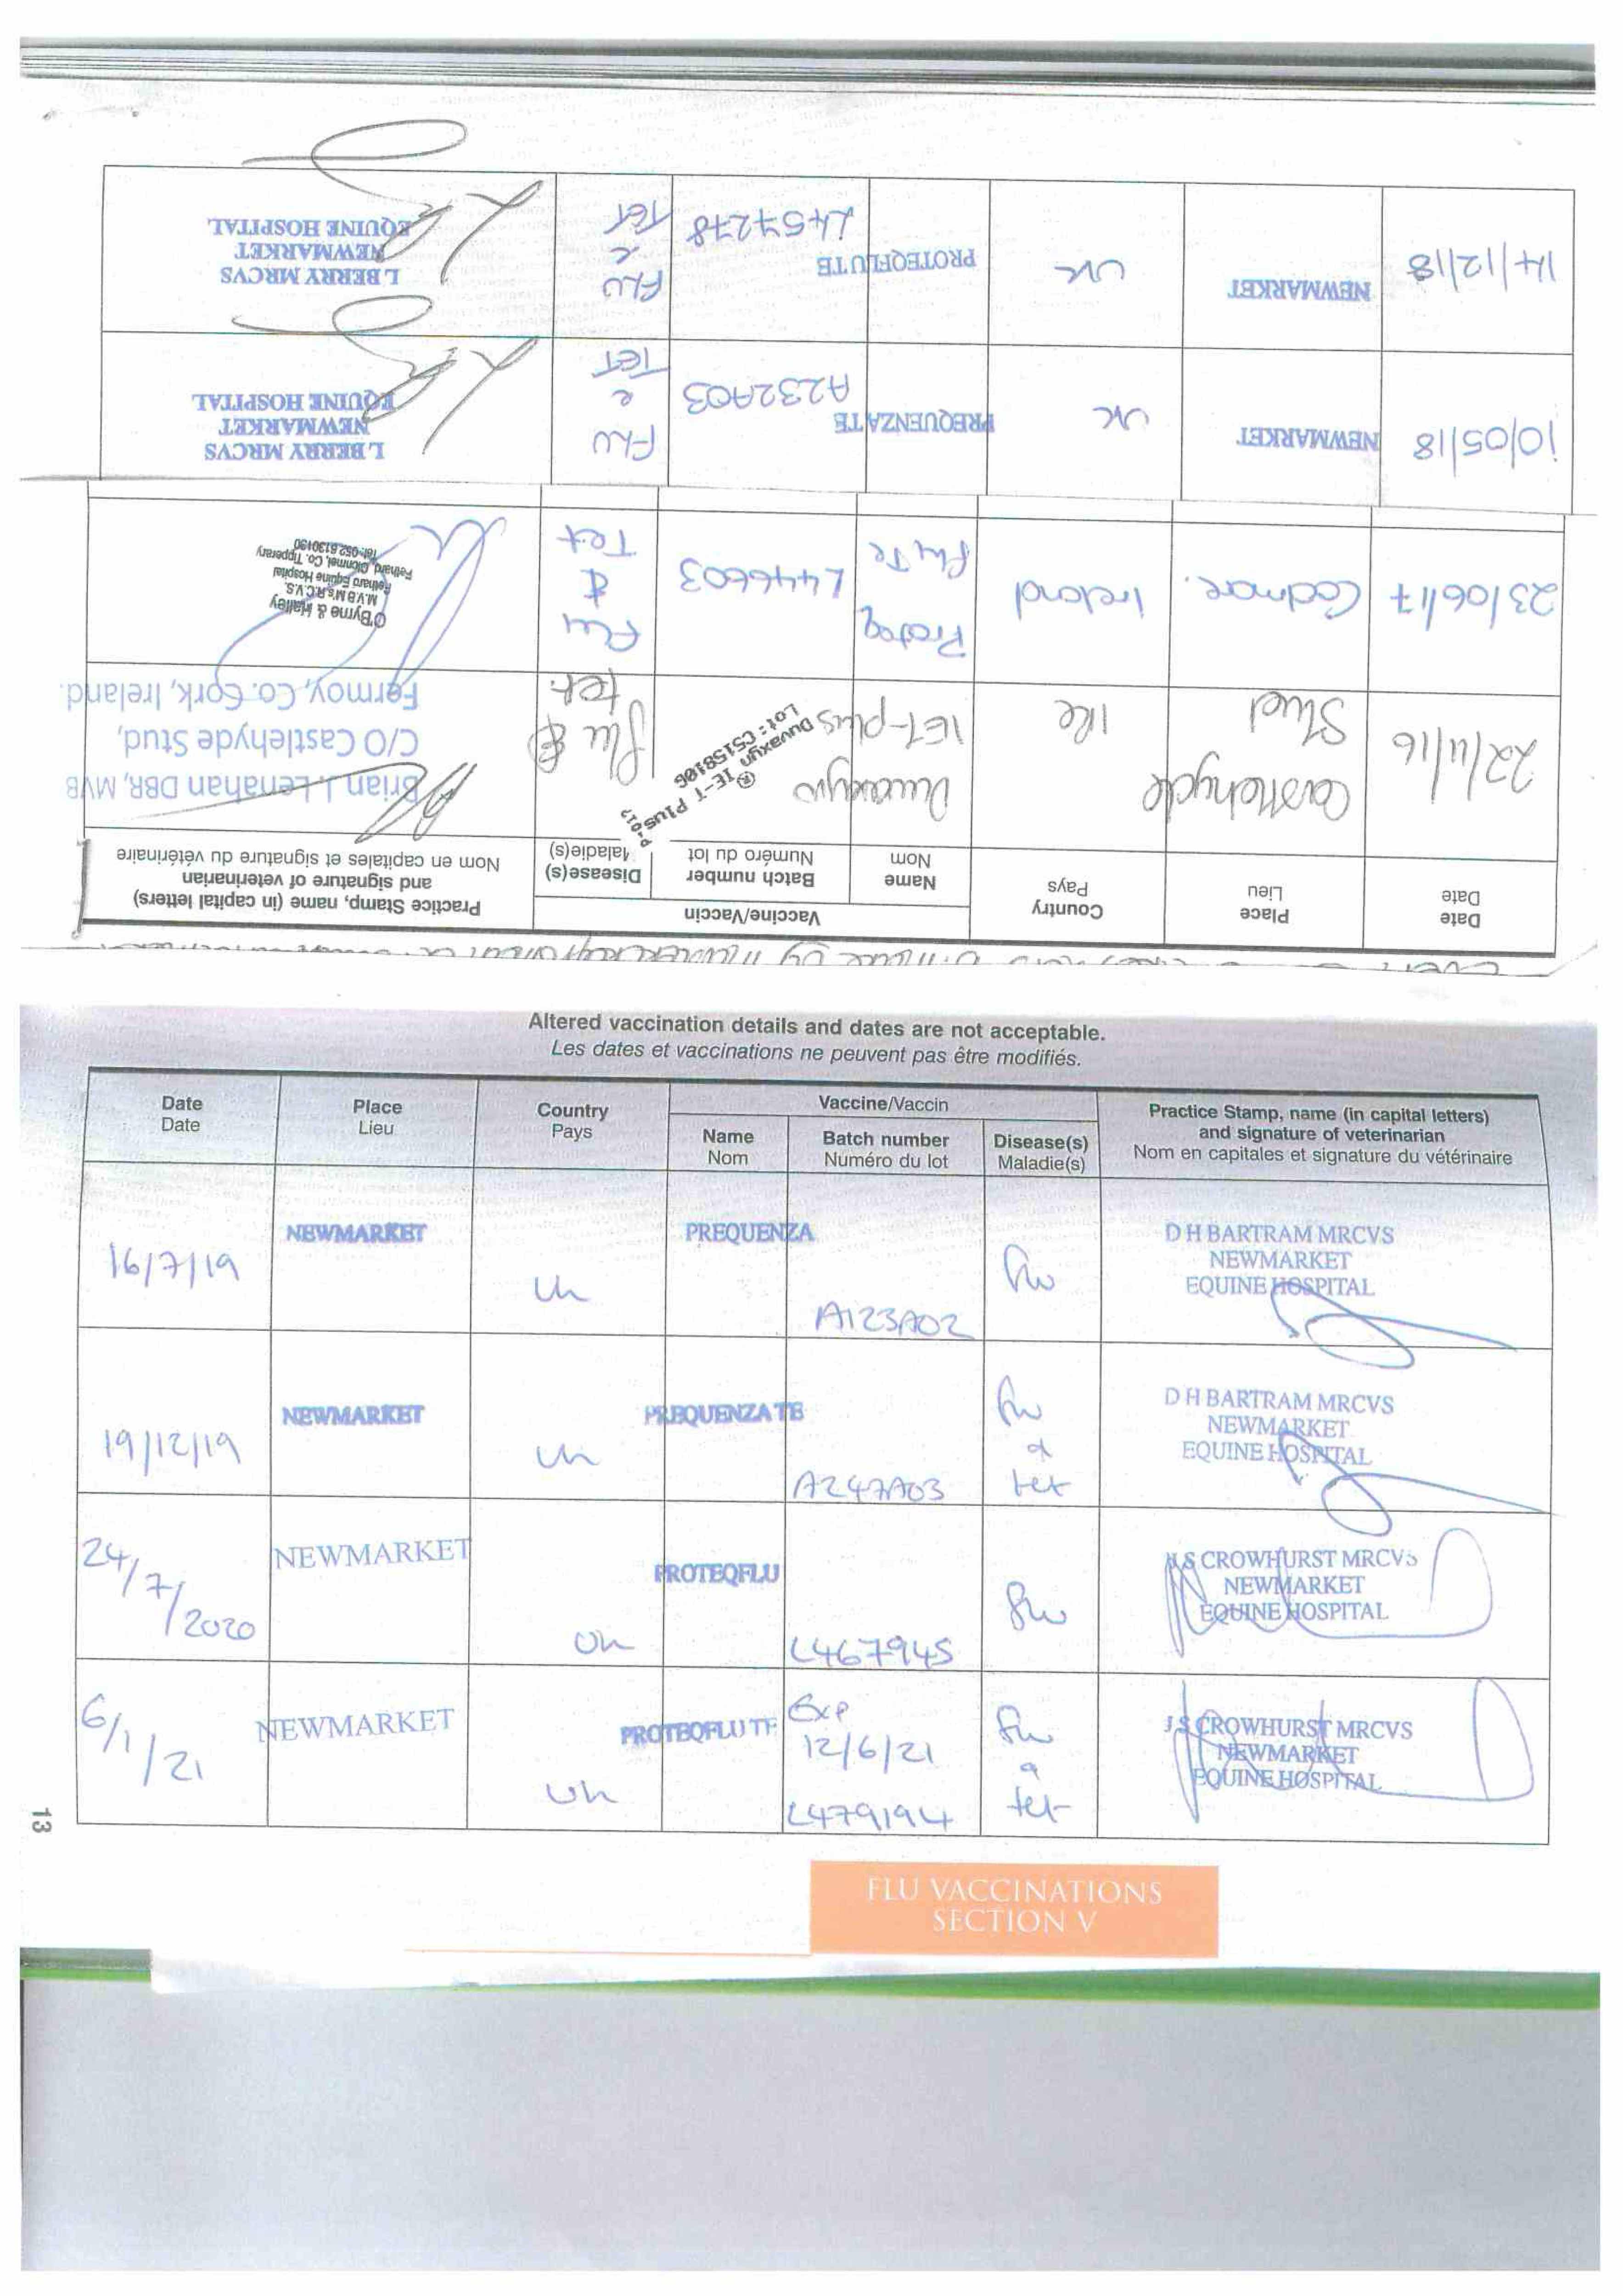 Date
Date
Place
Lieu
Country
Pays
Vaccine/Vaccin
Name
Nom
Batch number
Numéro du lot
Disease(s)
Maladie(s)
Practice Stamp, name (in capital letters)
and signature of veterinarian
Nom en capitales et signature du vétérinaire
22/11/16
Castlehyde
Stud
IRe
Duvaxyn
IET-plus
Duvaxyn IE-T Plus
®
Lot: C515810G
flu &
tet.
Brian J. Lenahan DBR, MVB
C/O Castlehyde Stud,
Fermoy, Co. Cork, Ireland.
23/06/17
Coolmore.
Ireland
Proteq
flu Te
L446603
Flu
&
Tet
O'Byrne & Halley
M.V.B M's R.C.V.S.
Fethard Equine Hospital
Fethard, Clonmel, Co. Tipperary
Tel: 052 6130130
10/05/18
NEWMARKET
UK
PREQUENZA TE
A232A03
FLU
e
TET
L BERRY MRCVS
NEWMARKET
EQUINE HOSPITAL
14/12/18
NEWMARKET
UK
PROTEQFLUTE
L457278
FLU
e
TET
L BERRY MRCVS
NEWMARKET
EQUINE HOSPITAL
Altered vaccination details and dates are not acceptable.
Les dates et vaccinations ne peuvent pas être modifiés.
Date
Date
Place
Lieu
Country
Pays
Vaccine/Vaccin
Name
Nom
Batch number
Numéro du lot
Disease(s)
Maladie(s)
Practice Stamp, name (in capital letters)
and signature of veterinarian
Nom en capitales et signature du vétérinaire
16/7/19
NEWMARKET
Uk
PREQUENZA
A123A02
flu
D H BARTRAM MRCVS
NEWMARKET
EQUINE HOSPITAL
19/12/19
NEWMARKET
Uk
PREQUENZA TE
A247A03
flu
&
tet
D H BARTRAM MRCVS
NEWMARKET
EQUINE HOSPITAL
24/7/2020
NEWMARKET
Uk
PROTEQFLU
L467945
flu
J S CROWHURST MRCVS
NEWMARKET
EQUINE HOSPITAL
6/1/21
NEWMARKET
Uk
PROTEQFLU TE
Exp
12/6/21
L479194
flu
&
tet
J S CROWHURST MRCVS
NEWMARKET
EQUINE HOSPITAL
13
FLU VACCINATIONS
SECTION V